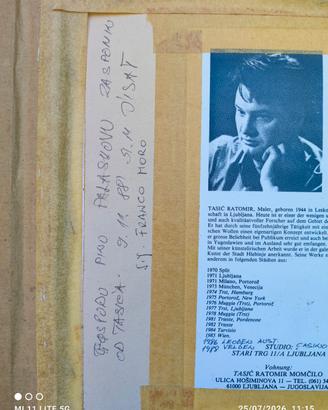 GOSPODU PINO PALASKOVU ZA SPOMIN
OD TASIĆA. 9.11.88!
SIG. FRANCO MORO
TASIĆ RATOMIR, Maler, geboren 1944 in Lesko
schaft in Ljubljana. Heute ist er einer der wenigen
und auch qualitätsvoller Forscher auf dem Gebiet de
Er hat durch seine fünfzehnjährige Tätigkeit mit ein
schen Wollen einen eigenartigen Konzept entwickelt,
er grosse Beliebheit bei Publikum erreict und auch be
in Yugoslawien und im Ausland sehr gut emfangen.
Mit seiner künstlerischen Arbeit wurde er in der gale
Kunst der Stadt Hlebinje anerkannt. Seine Werke s
anderem in folgenden Städten aus:
1970 Split
1971 Ljubljana
1971 Portorož, Motel
1973 München, Venecija
1974 Trst, Hamburg
1975 Portorož, New York
1976 Muggia (Trst), Portorož
1977 Trst, Ljubljana
1978 Muggia (Trst)
1981 Trieste, Pordenone
1982 Trieste
1984 Tarvisio
1985 Wien.
1986 LEOBEN AUST
1988 VELDEN CASINO
STUDIO:
STARI TRG 11/A LJUBLJANA
Vohnung:
TASIĆ RATOMIR MOMČILO
ULICA HOŠIMINOVA 11 — TEL. (061) 34
61000 LJUBLJANA — JUGOSLAVIJA
MI 11 LITE 5G
25/07/2026 11:15